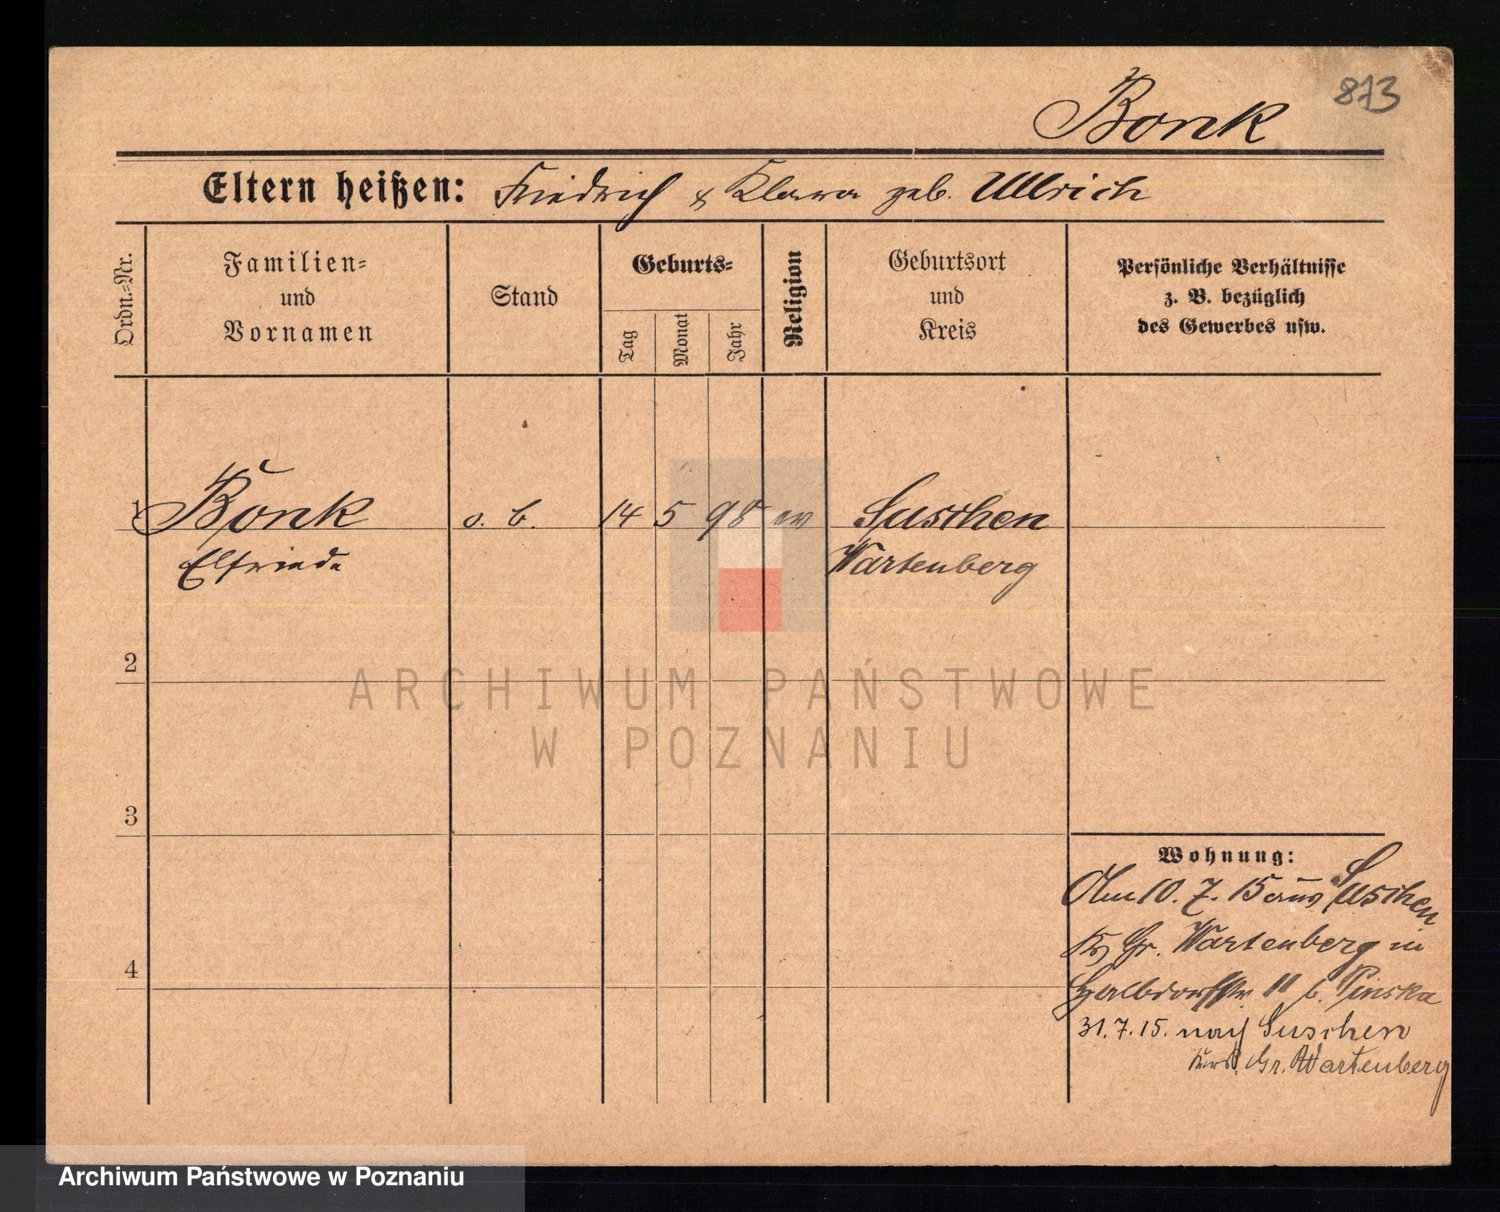 873
Bonk
Eltern heißen: Friedrich & Klara geb. Ullrich
Ordn.=Nr.
Familien=
und
Vornamen
Stand
Geburts=
Tag
Monat
Jahr
Religion
Geburtsort
und
Kreis
Persönliche Verhältnisse
z. B. bezüglich
des Gewerbes usw.
1 Bonk o. b. 14 5 98 ev Suschen
Elfriede Wartenberg
2
ARCHIWUM PAŃSTWOWE
W POZNANIU
3
Wohnung:
Am 10. 7. 15 aus Suschen
Kr Gr. Wartenberg in
Halbdorfstr 11 b. Pinska
4
31.7.15. nach Suschen
Gr. Wartenberg
Archiwum Państwowe w Poznaniu